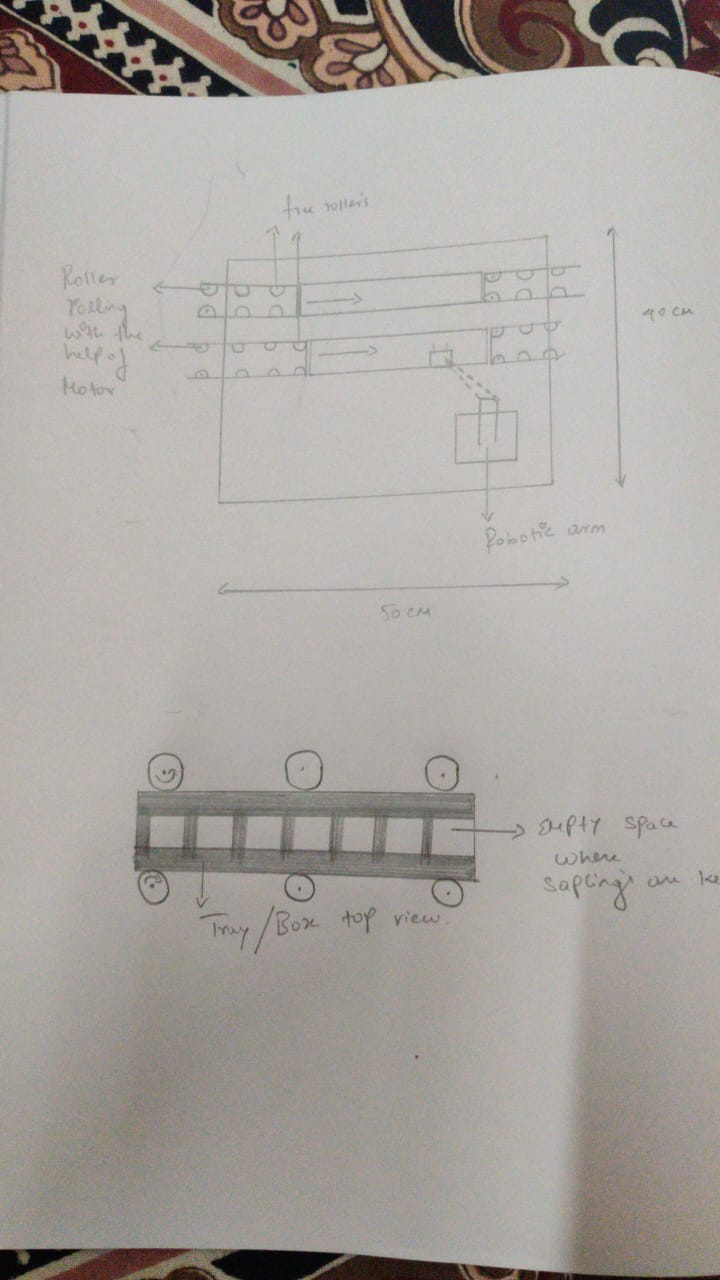 free rollers
Roller
rolling
with the
help of
Motor
40 cm
Robotic arm
50 cm
Empty space
where
saplings are ke
Tray/Box top view.